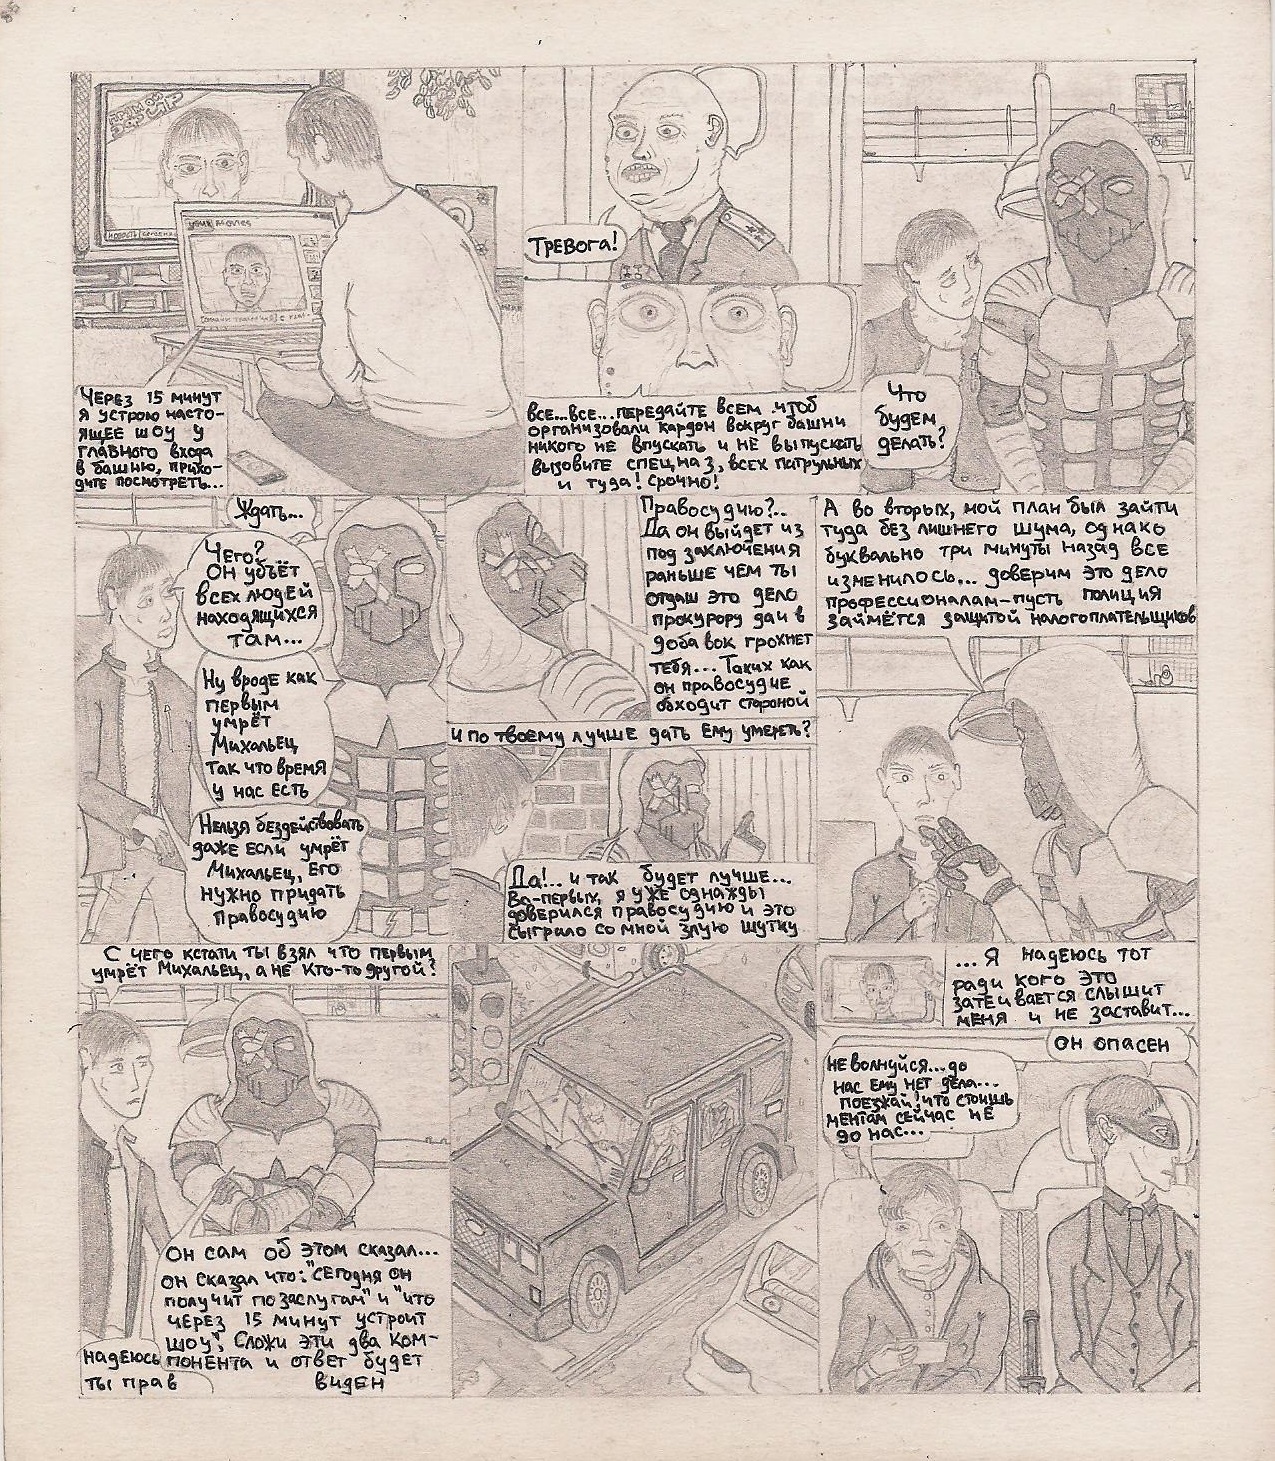 ПРЯМОЙ
ЭФИР
YOUR MOVIES
Через 15 минут
я устрою насто-
ящее шоу у
главного входа
в башню, прихо-
дите посмотреть...
Тревога!
все...все...передайте всем чтоб
организовали кардон вокруг башни
никого не впускать и не выпускать
вызовите спецназ, всех патрульных
и туда! Срочно!
Что
будем
делать?
Ждать...
Чего?
Он убъёт
всех людей
находящихся
там...
Ну вроде как
первым
умрёт
Михальец
так что время
у нас есть
Нельзя бездействовать
даже если умрёт
Михальец, его
нужно придать
правосудию
Правосудию?..
Да он выйдет из
под заключения
раньше чем ты
отдаш это дело
прокурору да и в
добавок грохнет
тебя... Таких как
он правосудие
обходит стороной
И по твоему лучше дать ему умереть?
Да!... и так будет лучше...
Во-первых, я уже однажды
доверился правосудию и это
сыграло со мной злую шутку
А во вторых, мой план был зайти
туда без лишнего шума, однако
буквально три минуты назад все
изменилось... доверим это дело
профессионалам-пусть полиция
займётся защитой налогоплательщиков
С чего кстати ты взял что первым
умрёт Михальец, а не кто-то другой?
Он сам об этом сказал...
он сказал что: "сегодня он
получит по заслугам" и "что
через 15 минут устроит
шоу", Сложи эти два ком-
понента и ответ будет
виден
надеюсь
ты прав
...Я надеюсь тот
ради кого это
затеивается слышит
меня и не заставит...
Он опасен
Не волнуйся...до
нас ему нет дела...
поезжай! что стоишь
ментам сейчас не
до нас...